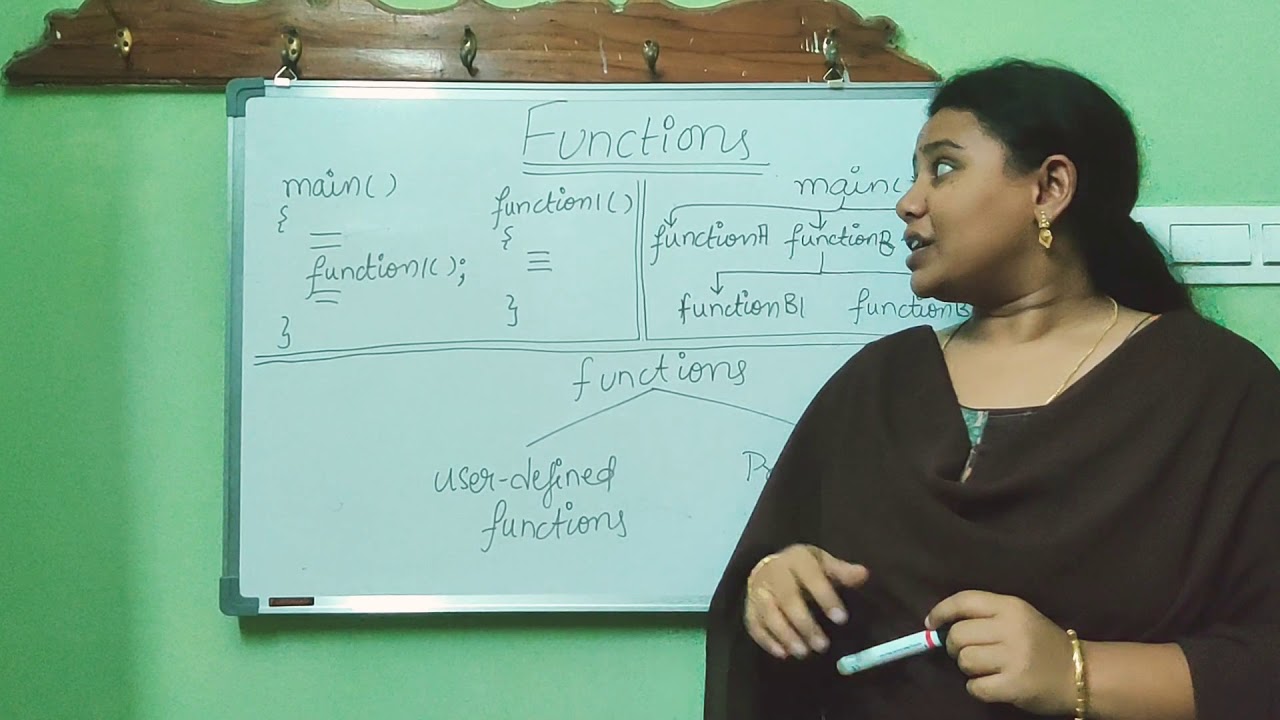 Functions
main()
{
function1();
}
function1()
{
}
main(
functionA functionB
functionB1 functionB
functions
user-defined
functions